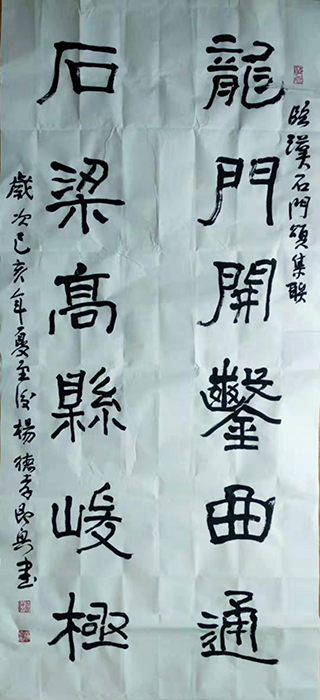 臨漢石門頌集联
龍門開鑿曲通
石梁高縣峻極
歲次己亥年夏至後楊德孝即興書